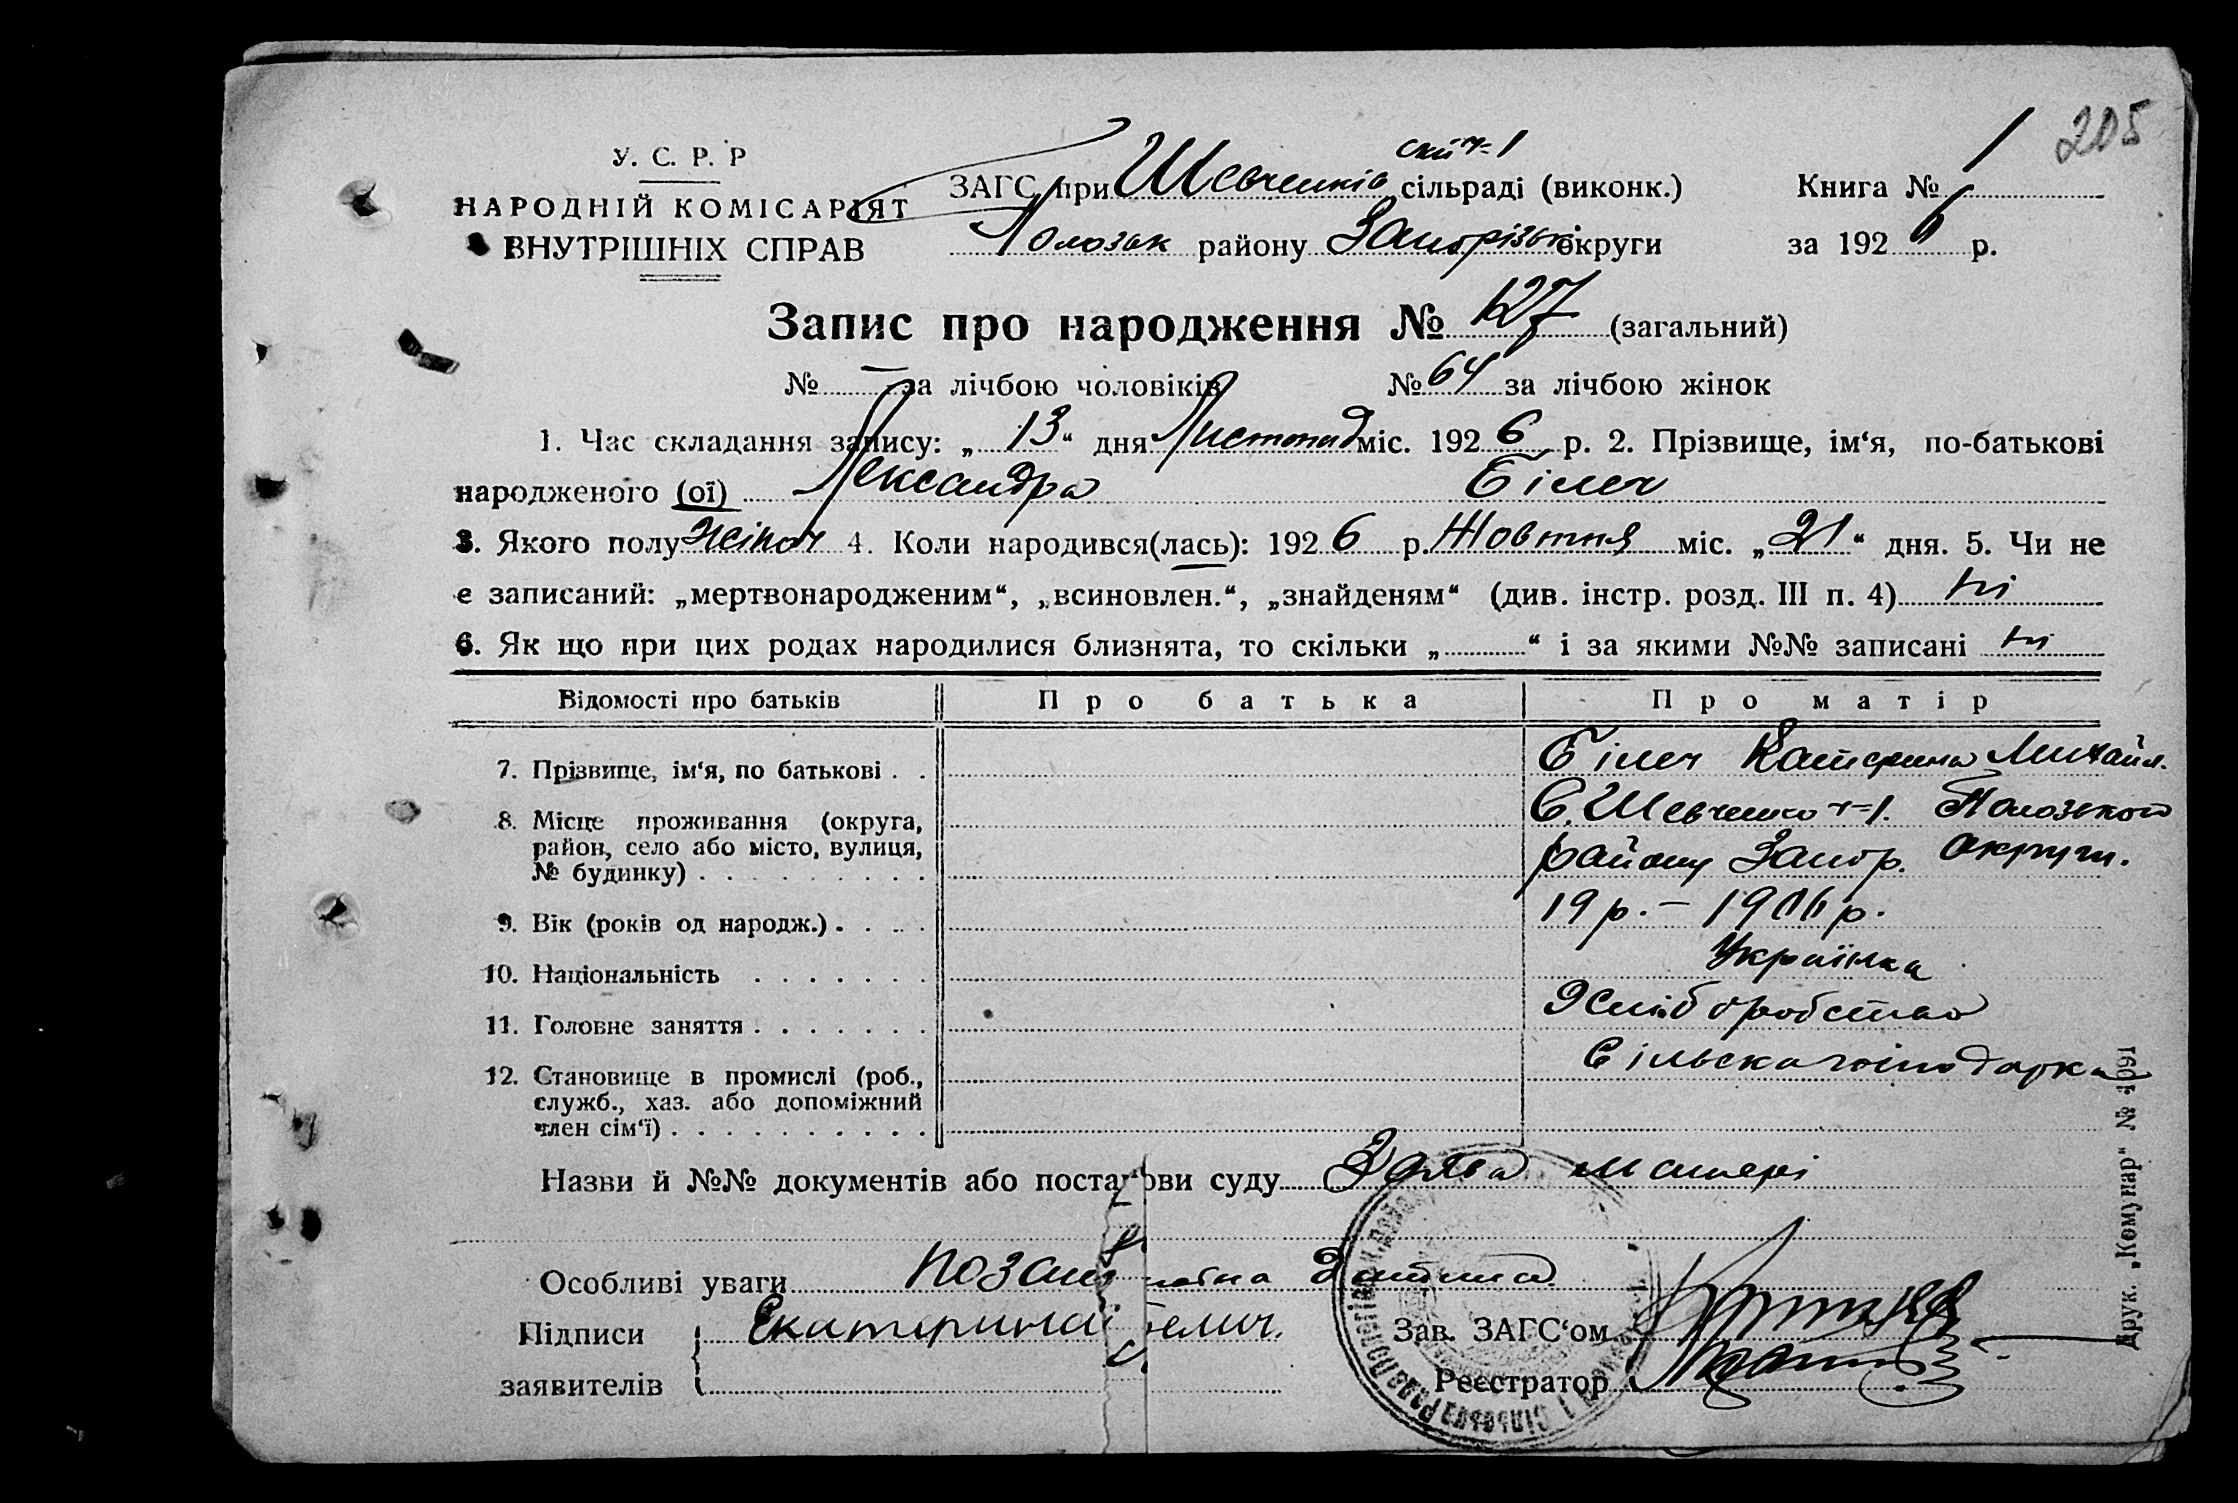 205
У. С. Р. Р
НАРОДНІЙ КОМІСАРІЯТ
ВНУТРІШНІХ СПРАВ
ЗАГС при Шевченків скій ч-1 сільраді (виконк.) Книга № 1
Полозьк району Запорізьк округи за 192 6 р.
Запис про народження № 127 (загальний)
№ — за лічбою чоловіків № 64 за лічбою жінок
1. Час складання запису: „ 13 “ дня Листопад міс. 192 6 р. 2. Прізвище, ім‘я, по-батькові
народженого (ої) Лександра Білеч
3. Якого полу жіноч 4. Коли народився(лась): 192 6 р. Жовтня міс. „ 21 “ дня. 5. Чи не
є записаний: „мертвонародженим“, „всиновлен.“, „знайденям“ (див. інстр. розд. III п. 4) ні
6. Як що при цих родах народилися близнята, то скільки „ “ і за якими №№ записані ні
Відомості про батьків Про батька Про матір
7. Прізвище, ім‘я, по батькові . . Білеч Катерина Михайл.
8. Місце проживання (округа, С. Шевченко ч-1. Полозького
район, село або місто, вулиця, району Запор. округи.
№ будинку) . . . . . . . . .
9. Вік (років од народж.) . . . . 19 р. – 1906 р.
10. Національність . . . . . . . Українка
11. Головне заняття . . . . . . . Хліборобство
12. Становище в промислі (роб., Сільска господарка
служб., хаз. або допоміжний
член сім‘ї) . . . . . . . . . .
Назви й №№ документів або постанови суду Заява матері
Особливі уваги позашлюбна дитина
Підписи Екатерина Белич. Зав. ЗАГС‘ом
заявителів Реєстратор
Друк. „Комунар“ № 4091